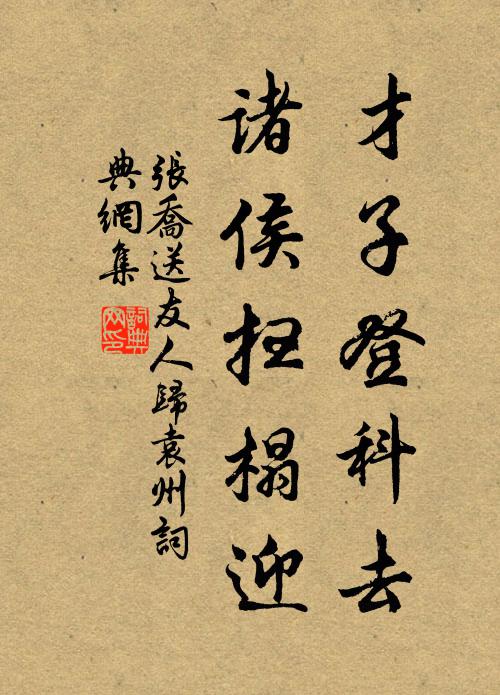 才子登科去
诸侯扫榻迎
張喬送友人歸袁州詞
典網集
詞典
网印